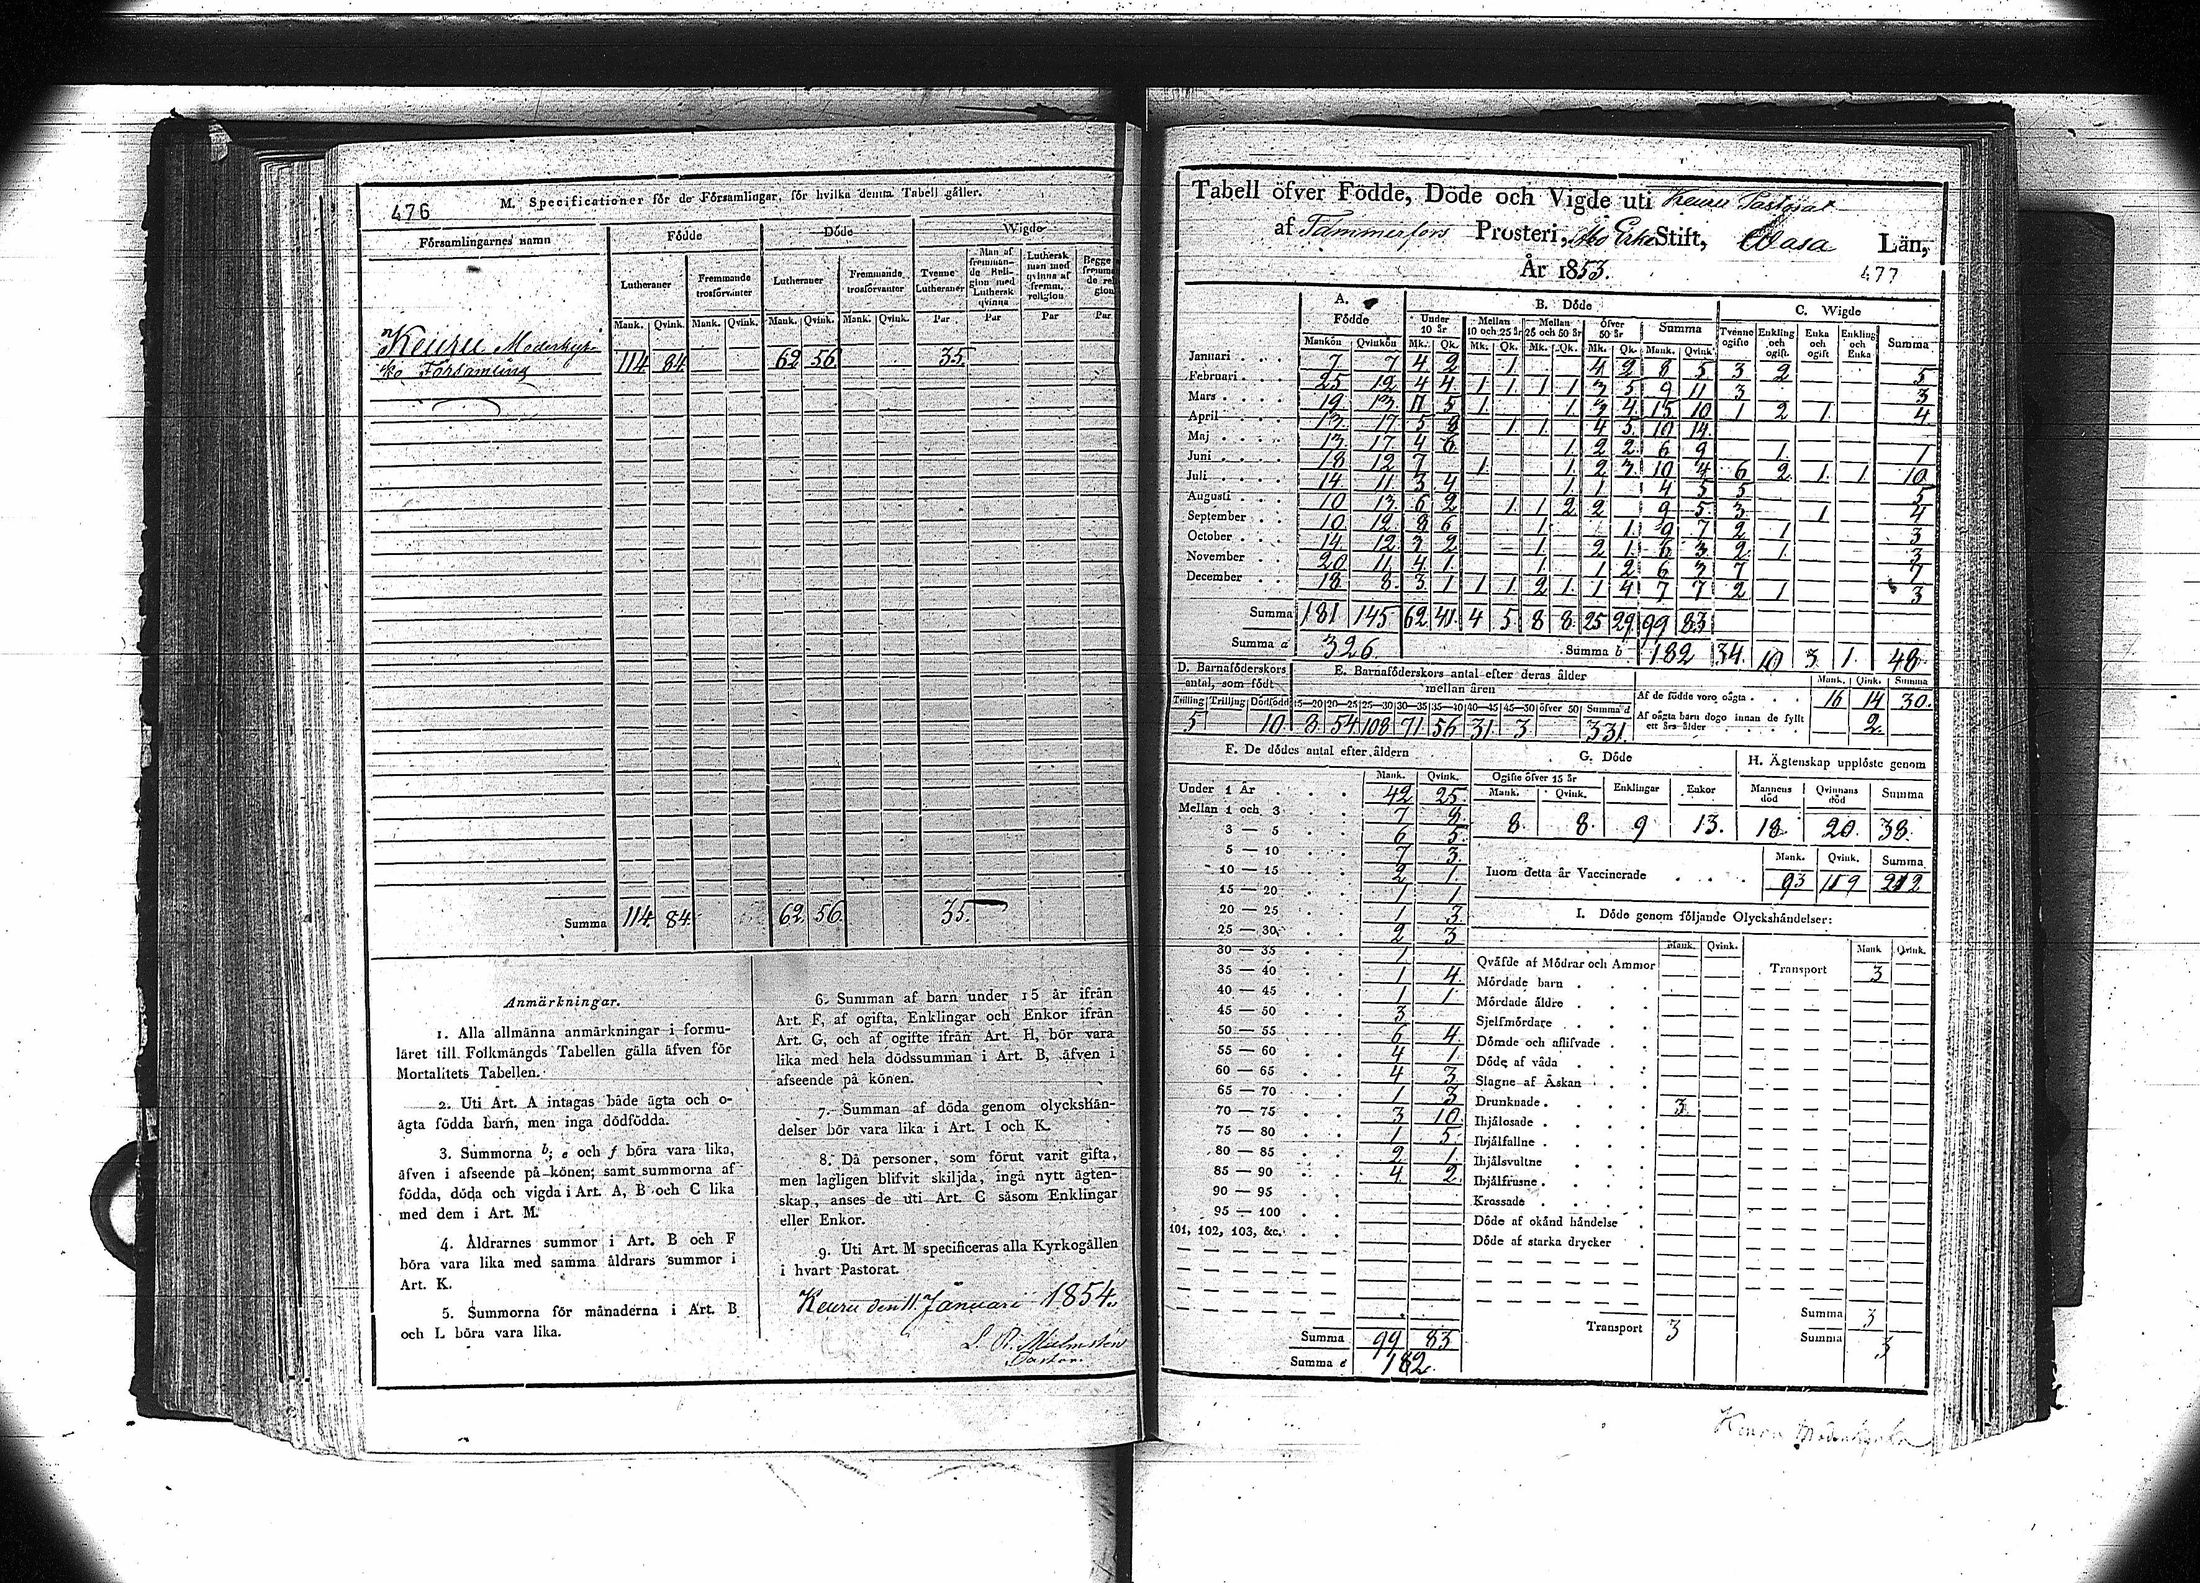 476
M. Specificationer för de Församlingar, för hvilka denna Tabell gäller.
Församlingarnes namn
Födde
Döde
Wigde
Lutheraner
Fremmande trosförvanter
Lutheraner
Fremmande trosförvanter
Tvenne Lutheraner
Man af fremmande Religion med Luthersk qvinna
Luthersk man med qvinna af fremm. religion
Begge
Mank. Qvink. Mank. Qvink. Mank. Qvink. Mank. Qvink. Par Par Par Par
Keuru Moderkyr-
ko Församling 114 84 62 56 35.
Summa 114 84 62 56 35.
Anmärkningar.
1. Alla allmänna anmärkningar i formu-
läret till Folkmängds Tabellen gälla äfven för
Mortalitets Tabellen.
2. Uti Art. A intagas både ägta och o-
ägta födda barn, men inga dödfödda.
3. Summorna b, e och f böra vara lika,
äfven i afseende på könen; samt summorna af
födda, döda och vigda i Art. A, B och C lika
med dem i Art. M.
4. Åldrarnes summor i Art. B och F
böra vara lika med samma åldrars summor i
Art. K.
5. Summorna för månaderna i Art. B
och L böra vara lika.
6. Summan af barn under 15 år ifrån
Art. F, af ogifta, Enklingar och Enkor ifrån
Art. G, och af ogifte ifrån Art. H, bör vara
lika med hela dödssumman i Art. B, äfven i
afseende på könen.
7. Summan af döda genom olyckshän-
delser bör vara lika i Art. I och K.
8. Då personer, som förut varit gifta,
men lagligen blifvit skiljda, ingå nytt ägten-
skap, anses de uti Art. C såsom Enklingar
eller Enkor.
9. Uti Art. M specificeras alla Kyrkogällen
i hvart Pastorat.
Keuru den 11 Januari 1854.
Malmstén
Pastor.
Tabell öfver Födde, Döde och Vigde uti Keuru Pastorat
af Tammerfors Prosteri, Åbo Erke Stift, Wasa Län,
År 1853.
477
A. Födde
B. Döde
C. Wigde
Under 10 år
Mellan 10 och 25 år
Mellan 25 och 50 år
Öfver 50 år
Summa
Tvenne ogifte
Enkling och ogift
Enka och ogift
Enkling och Enka
Summa
Mankön Qvinkön Mk. Qk. Mk. Qk. Mk. Qk. Mk. Qk. Mank. Qvink.
Januari 7 7 4 2 1 4 2 8 5 3 2 5
Februari 25 12 4 4 1 1 1 1 3 5 9 11 3 3
Mars 19 13 11 5 1 1 3 4 15 10 1 2 1 4
April 13 17 5 8 1 1 4 5 10 14
Maj 13 17 4 6 1 2 2 6 9 1 1
Juni 18 12 7 1 1 2 3 10 4 6 2 1 1 10
Juli 14 11 3 4 1 1 4 5 5 5
Augusti 10 13 6 2 1 1 2 2 9 5 3 1 4
September 10 12 8 6 1 1 9 7 2 1 3
October 14 12 3 2 1 2 1 6 3 2 1 3
November 20 11 4 1 1 1 2 6 3 7 7
December 18 8 3 1 1 1 2 1 1 4 7 7 2 1 3
Summa 181 145 62 41 4 5 8 8 25 29 99 83
Summa a 326. Summa b 182 34. 10 3 1. 48.
D. Barnaföderskors antal, som födt
E. Barnaföderskors antal efter deras ålder
mellan åren
Tvilling Trilling Dödfödd 15—20 20—25 25—30 30—35 35—40 40—45 45—50 öfver 50 Summa d
5 10 8 54 108 71 56 31 3 331
Mank. Qink. Summa
Af de födde voro oägta 16 14 30.
Af oägta barn dogo innan de fyllt
ett års ålder 2.
F. De dödes antal efter åldern
Mank. Qvink.
Under 1 År 42 25
Mellan 1 och 3 7 8
3 — 5 6 5
5 — 10 7 3
10 — 15 2 1
15 — 20 1 1
20 — 25 1 3
25 — 30 2 3
30 — 35 1
35 — 40 1 4
40 — 45 1 1
45 — 50 3
50 — 55 6 4
55 — 60 4 1
60 — 65 4 3
65 — 70 1 3
70 — 75 3 10
75 — 80 1 5
80 — 85 2 1
85 — 90 4 2
90 — 95
95 — 100
101, 102, 103, &c.
Summa 99 83
Summa e 182.
G. Döde
Ogifte öfver 15 år
Enklingar
Enkor
Mank. Qvink.
8. 8. 9 13.
H. Ägtenskap upplöste genom
Mannens död
Qvinnans död
Summa
18 20. 38.
Mank. Qvink. Summa
Inom detta år Vaccinerade 93 119 212
I. Döde genom följande Olyckshändelser:
Mank. Qvink.
Qväfde af Mödrar och Ammor
Mördade barn
Mördade äldre
Sjelfmördare
Dömde och aflifvade
Döde af våda
Slagne af Åskan
Drunknade 3
Ihjälosade
Ihjälfallne
Ihjälsvultne
Ihjälfrusne
Krossade
Döde af okänd händelse
Döde af starka drycker
Transport 3
Mank Qvink.
Transport 3
Summa 3
Summa 3
Keuru Moderkyrka